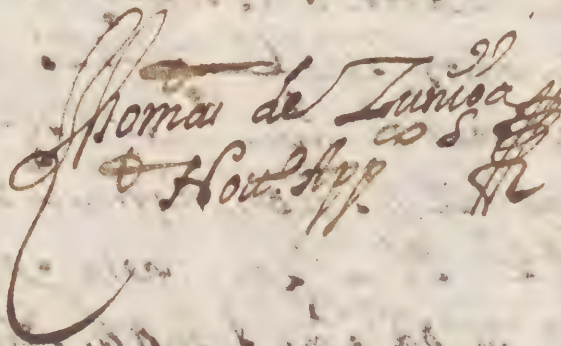 Thomas de Zuniga
Not.º App.co